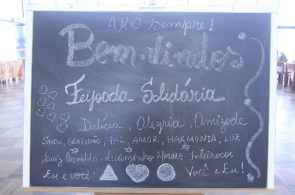 AMO Sempre!
Bem-vindos
Feijoada Solidária
Delícia, Alegria, Amizade
GRATIDÃO, PAZ, AMOR, HARMONIA, LUZ
Luanzinho Moraes
Eu e você! Você e Eu!